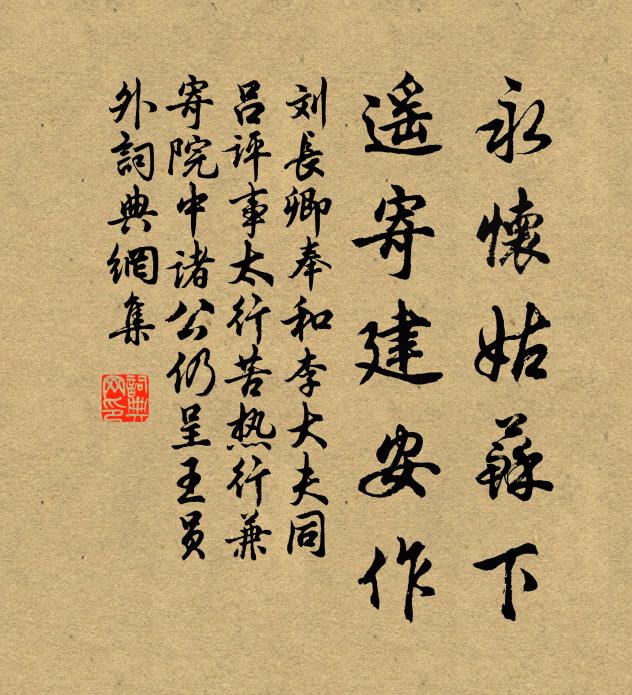 永懷姑蘇下
遥寄建安作
刘長卿奉和李大夫同
吕评事太行苦热行兼
寄院中诸公仍呈王员
外詞典網集
詞典網印